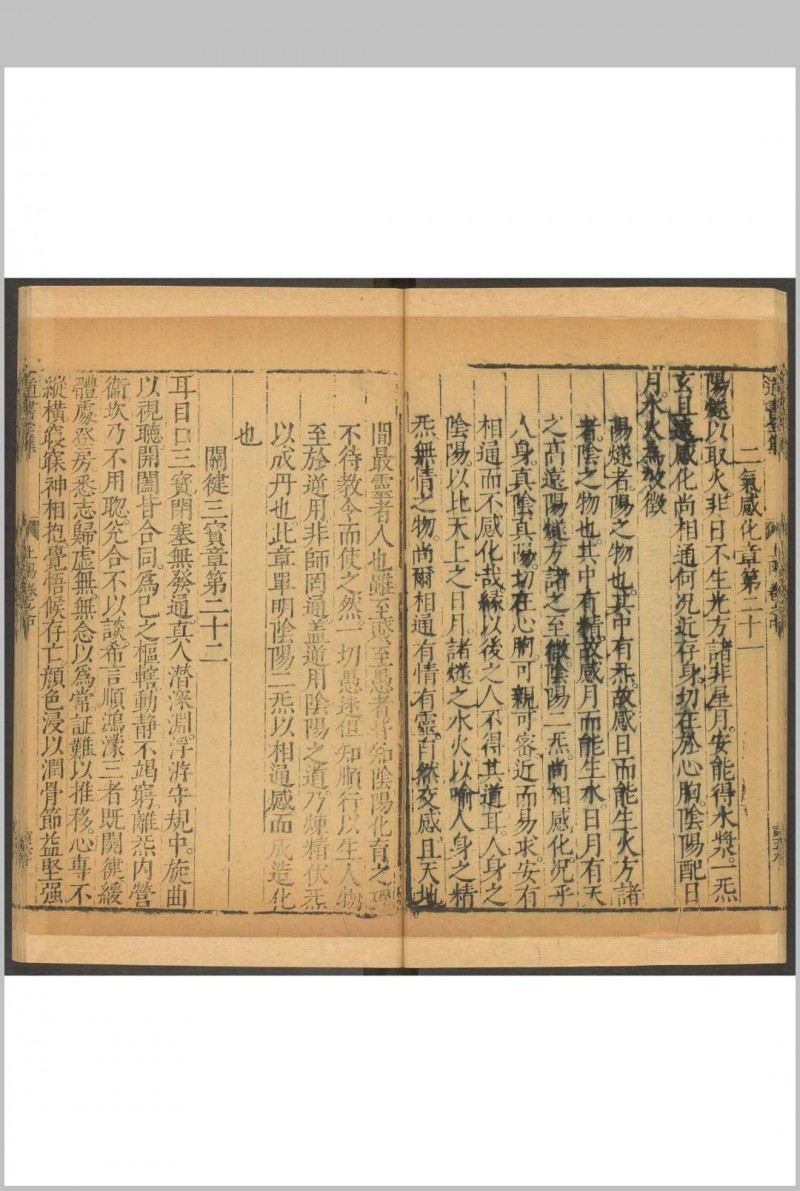 二氣感化章第二十一
陽燧以取火。非日不生光。方諸非星月。安能得水漿。二炁
玄且遠。感化尚相通。何况近存身。切在於心胸。陰陽配日
月。水火為效徵
陽燧者。陽之物也。其中有炁。故感日而能生火。方諸
者。陰之物也。其中有精。故感月而能生水。日月有天
之高遠。陽燧方諸之至微。陰陽二炁。尚相感化。况乎
人身。真陰真陽。切在心胸。可親可密。近而易求。安有
相通而不感化哉。緣以後之人不得其道耳。人身之
陰陽。以比天上之日月。諸燧之水火。以喻人身之精
炁。無情之物。尚爾相通。有情有靈。自然交感。且天地
間最靈者人也雖至蠢至愚者皆知陰陽化育之理
不待教令而使之然一切愚迷但知順行以生人物
至於道用非師罔通。盖道用陰陽之道乃煉精伏炁
以成丹也此章單明陰陽二炁以相通感而成造化
也
關鍵三寶章第二十二
耳目口三寶閉塞無發通真人潛深淵。浮游守規中。旋曲
以視聽開闔甘合同。爲己之樞轄。動靜不竭窮。離炁內營
衛坎乃不用聦。兌合不以談。希言順鴻濛三者既關鍵緩
體處空房。悉志歸虛無無念以爲常証難以推移。心專不
縱橫寢寐神相抱。覺悟候存亡。顔色浸以潤骨節益堅强